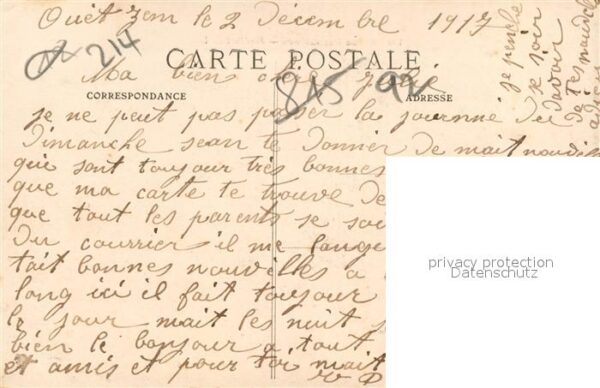 Ouèt Zem le 2 Décembre 1917
214
CARTE POSTALE
Ma bien chère
CORRESPONDANCE
ADRESSE
je ne peut pas passer la journné du
Dimanche sean te donner de mait nouvelle
qui sont toujour très bonnes
que ma carte te trouve de
que tout les parents se
Du courrier il me lange
tait bonnes nouvelles a
long ici il fait toujour
le jour mait les nuit
bien le bonjour a tout
et amis et pour toi mait
je penche
ce soir
davoir
de Tes nouvel
privacy protection
Datenschutz